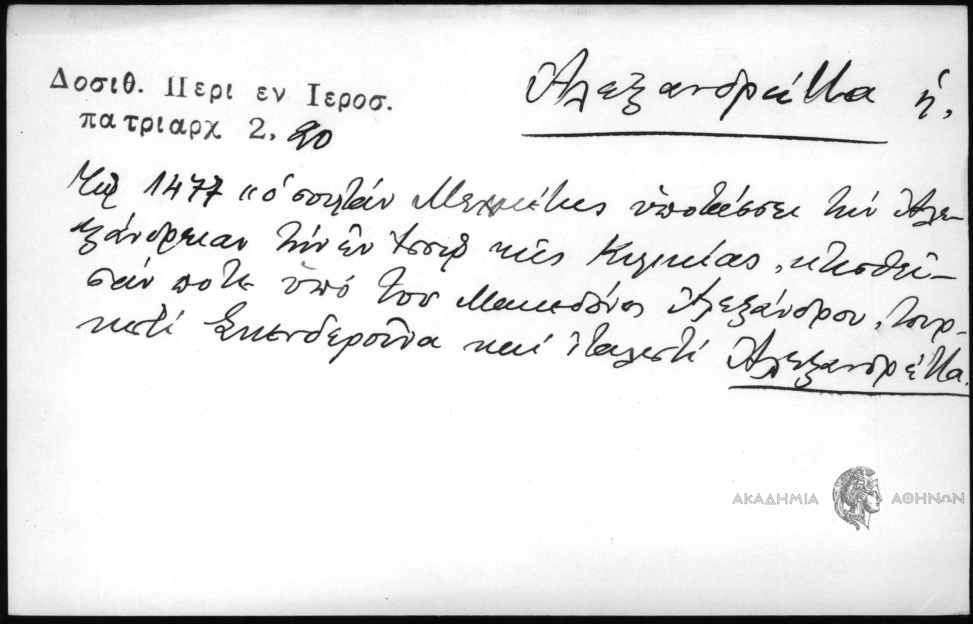 Δοσιθ. Περι εν Ιεροσ.
πατριαρχ 2, 20
Ἀλεξανδρέττα ἡ,
Τῷ 1477 "ὁ σουλτάν Μεχμέτης ὑποτάσσει τὴν Ἀλε-
ξάνδρειαν τὴν ἐν τῆς Κιλικίας, κτισθεῖ-
σάν ποτε ὑπό τοῦ Μακεδόνος Ἀλεξάνδρου, τουρ-
κιστί Σκενδεροῦνα καί ἰταλιστί Ἀλεξανδρέττα.
ΑΚΑΔΗΜΙΑ ΑΘΗΝΩΝ